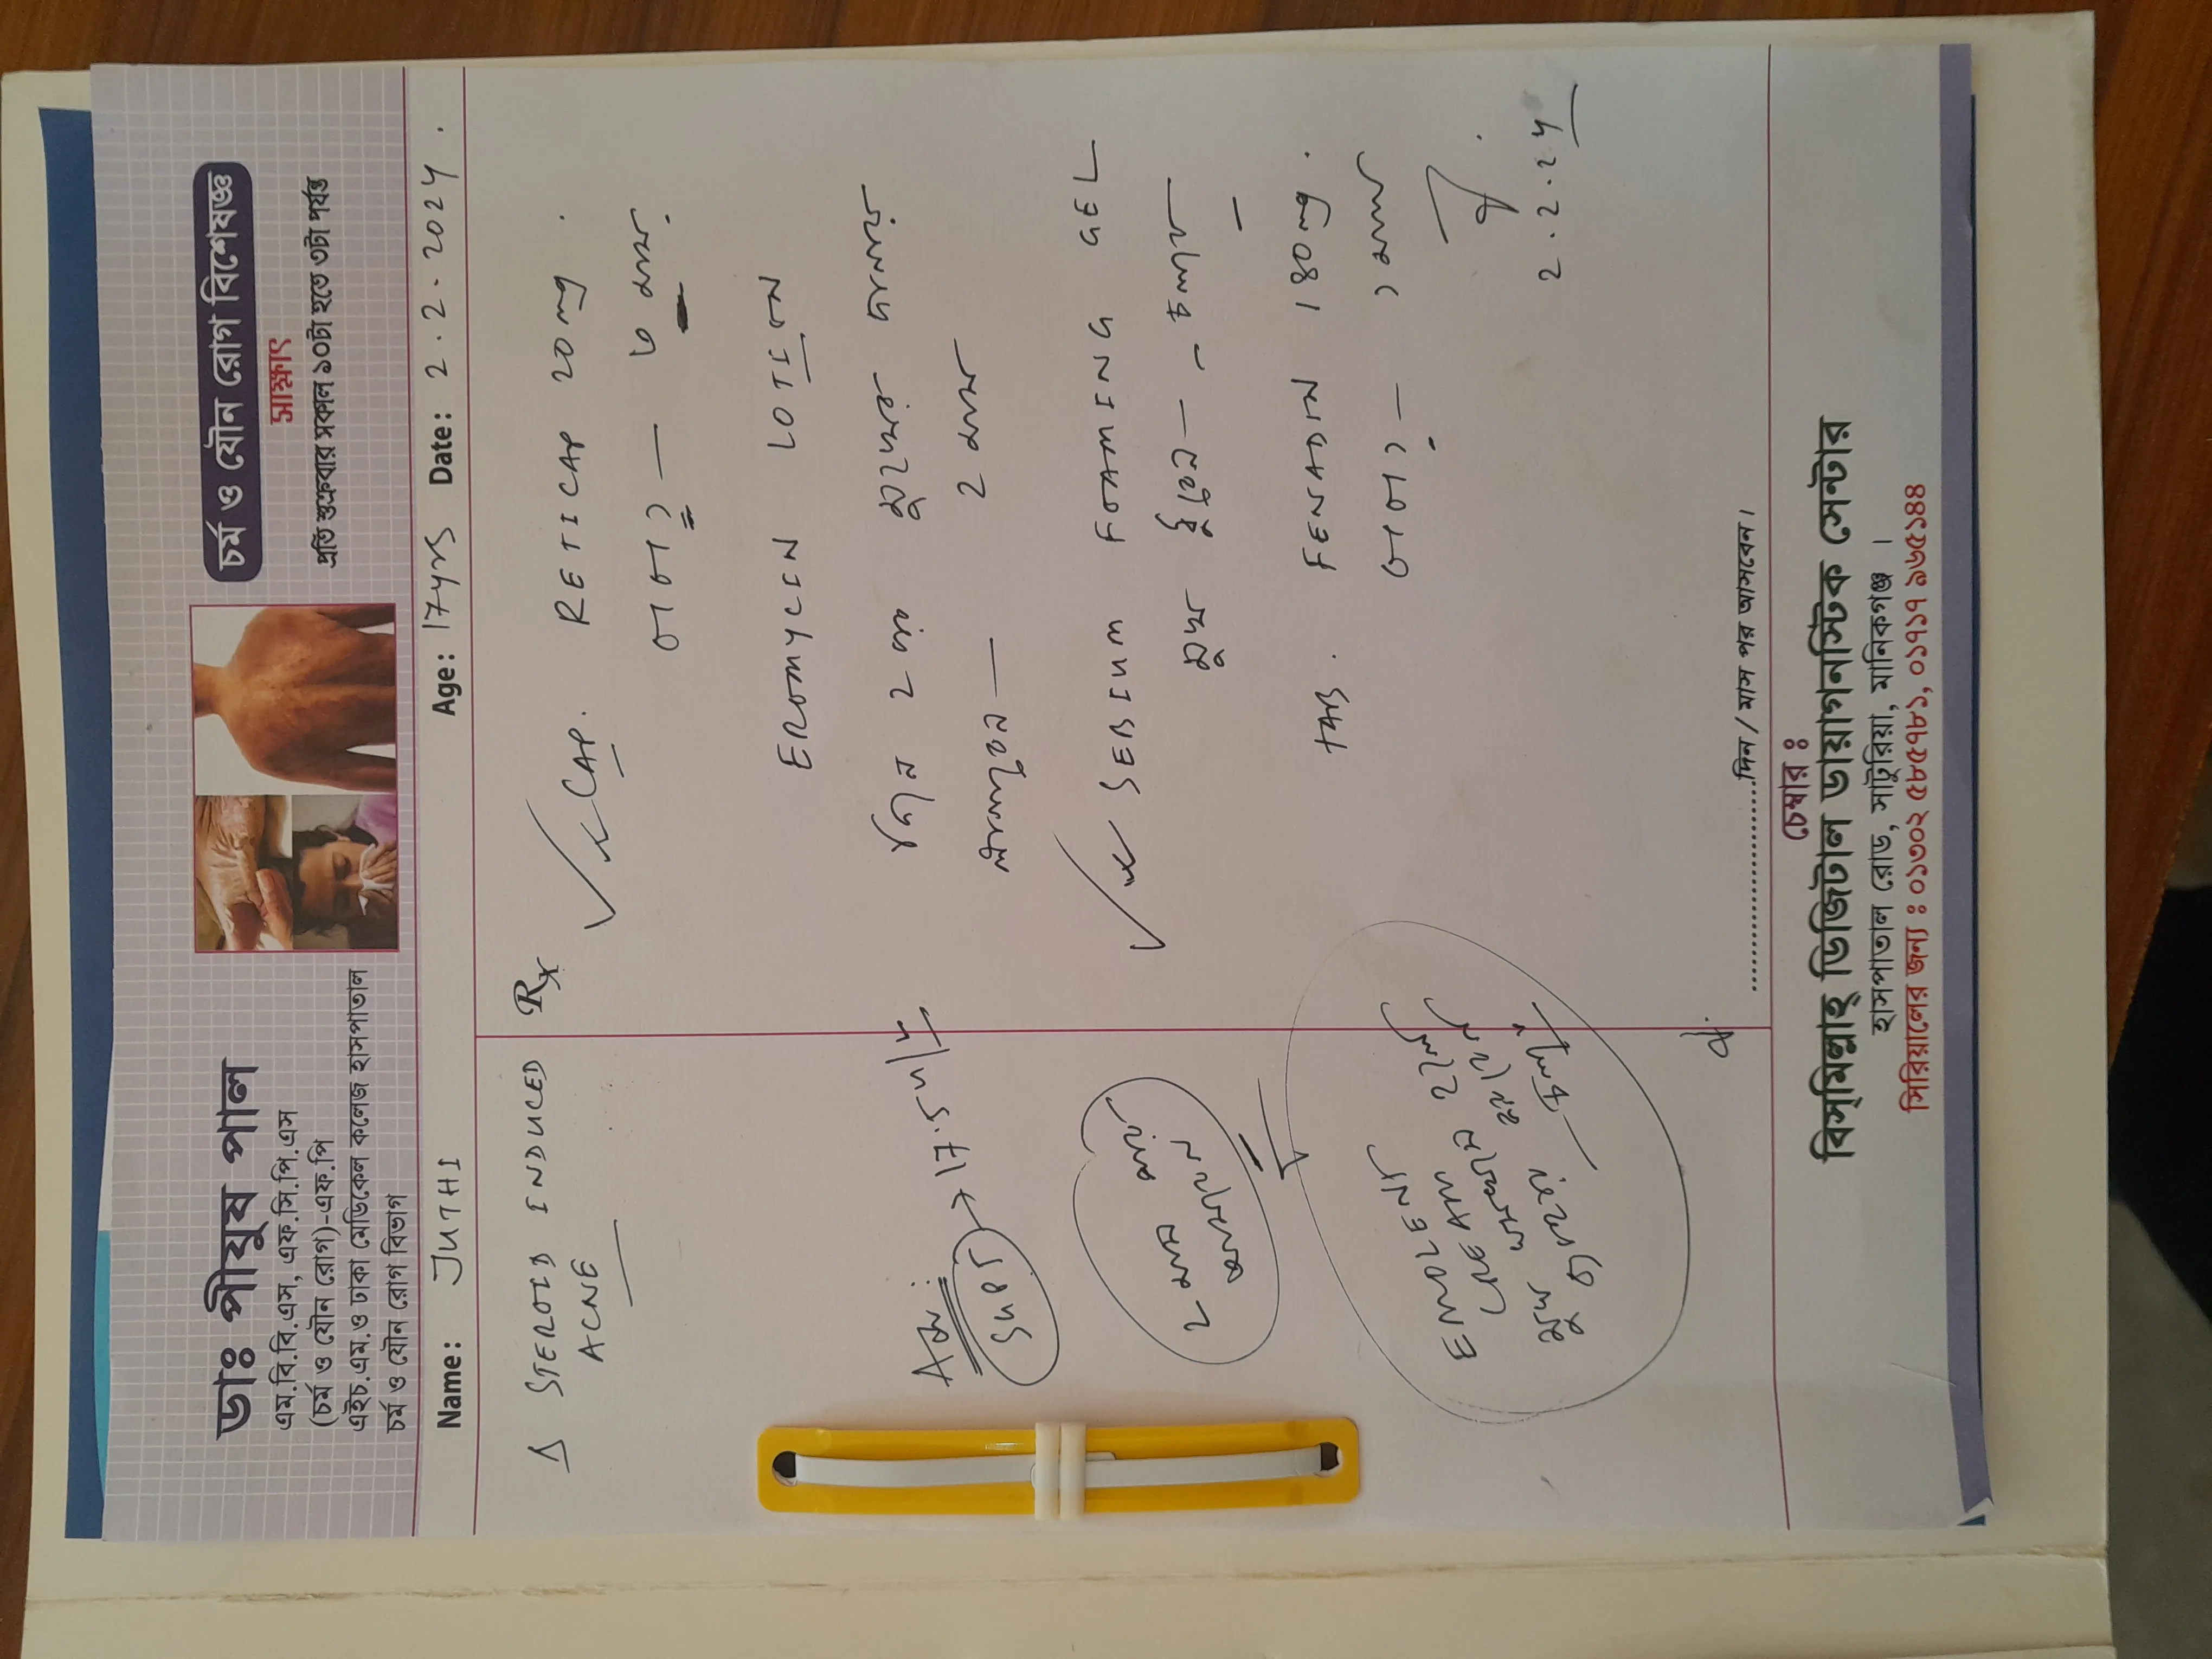 ডাঃ পীযুষ পাল
এম.বি.বি.এস, এফ.সি.পি.এস
(চর্ম ও যৌন রোগ)-এফ.পি
এইচ.এম.ও ঢাকা মেডিকেল কলেজ হাসপাতাল
চর্ম ও যৌন রোগ বিভাগ
চর্ম ও যৌন রোগ বিশেষজ্ঞ
সাক্ষাৎ
প্রতি শুক্রবার সকাল ১০টা হতে ৩টা পর্যন্ত
Name: JUTHI Age: 17yrs Date: 2.2.2024.
Δ STEROID INDUCED
ACNE
SGPT → 17.5 u/l
2 মাস
EMOLENT
CREAM
Rx
CAP. RETICAP 20mg.
0+0+১ — ৬ মাস.
EROMYCIN LOTION
2 মাস
SEBIUM FOAMING GEL
মুখ ধুইবেন —
TAB. FENADIN 180mg.
0+0+১ — ১ মাস
2.2.24
দিন / মাস পর আসবেন।
চেম্বার ঃ
বিস্‌মিল্লাহ্ ডিজিটাল ডায়াগনস্টিক সেন্টার
হাসপাতাল রোড, সাটুরিয়া, মানিকগঞ্জ ।
সিরিয়ালের জন্য ঃ ০১৩০২ ৫৮৫৭৮১, ০১৭১৭ ৯৬৫১৪৪